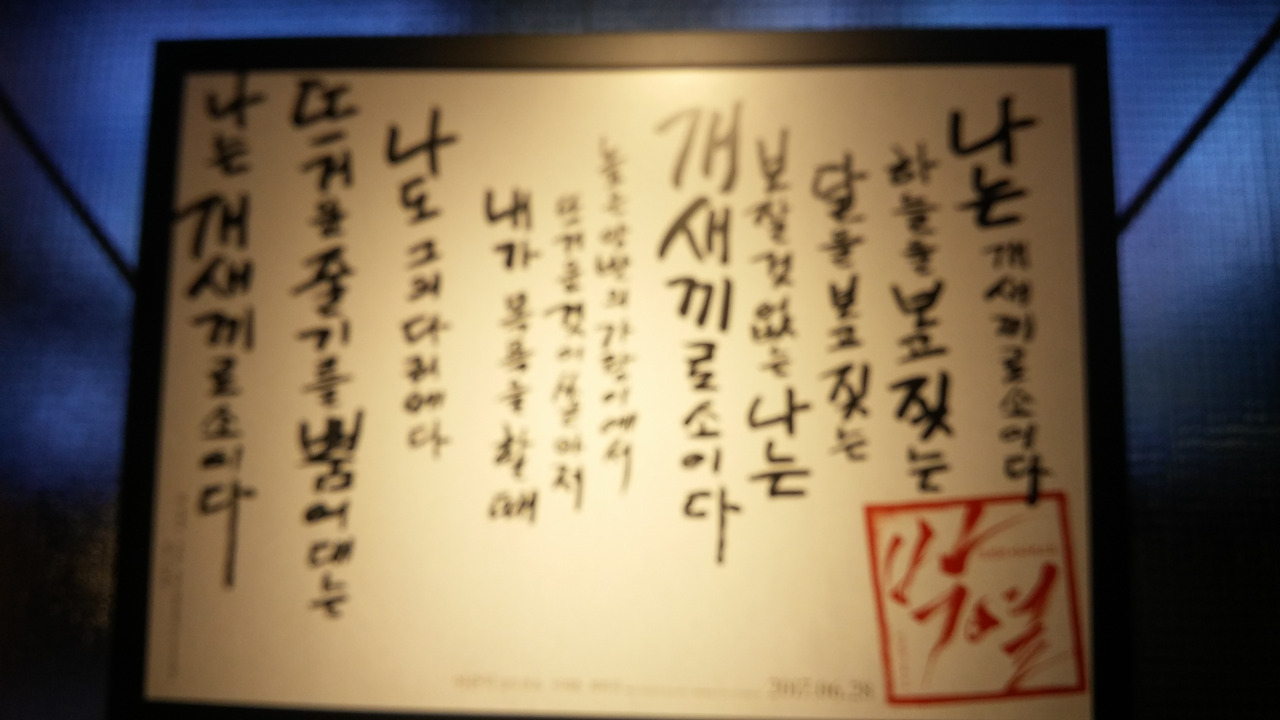 나는 개새끼로소이다
하늘을 보고 짖는
달을 보고 짖는
보잘것없는 나는
개새끼로소이다
높은 양반의 가랑이에서
뜨거운 것이 쏟아져
내가 목욕을 할 때
나도 그의 다리에다
뜨거운 줄기를 뿜어대는
나는 개새끼로소이다
박열
2017.06.28